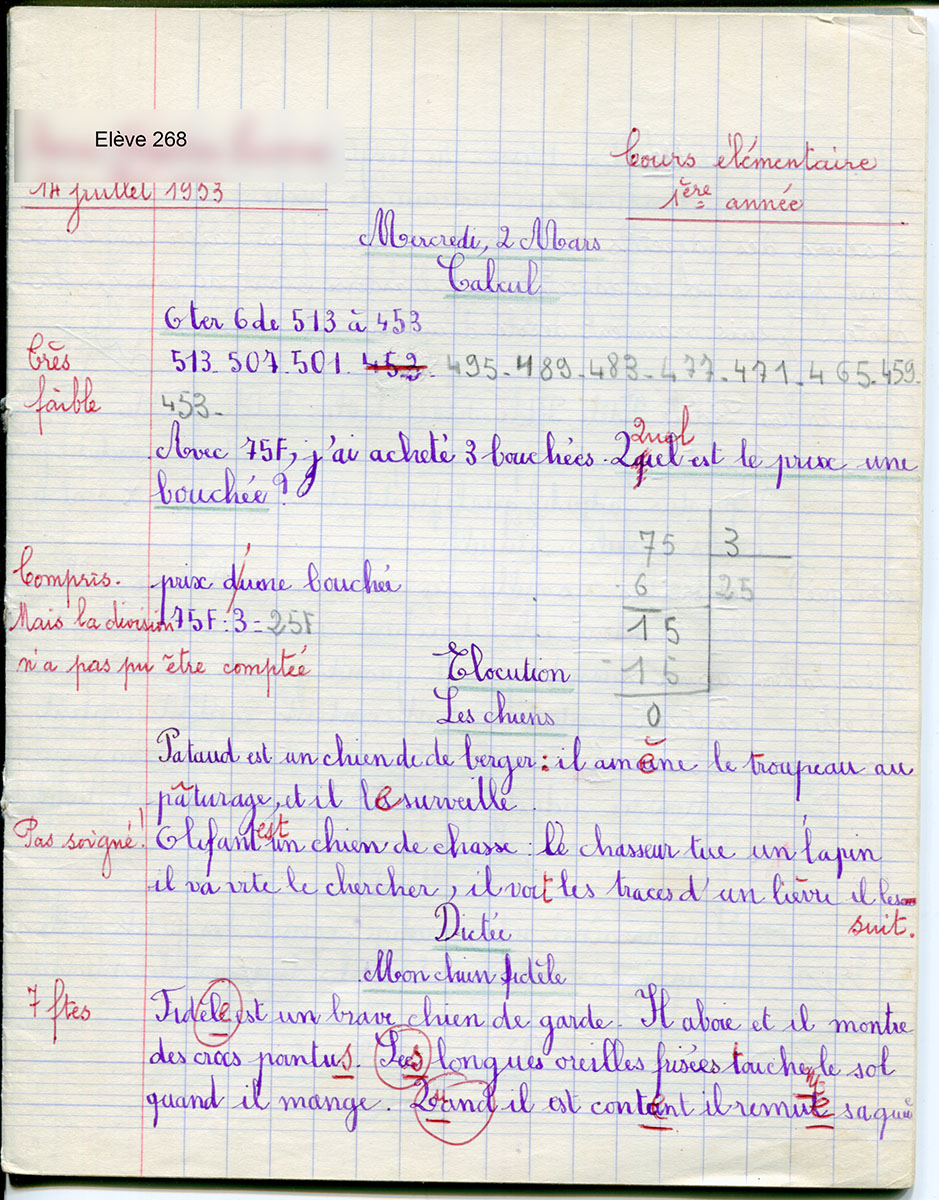 Elève 268
Cours élémentaire
14 juillet 1953
1ère année
Mercredi, 2 Mars
Calcul
6 ter 6 de 513 à 453
Très
513. 507. 501. 453. 495. 489. 483. 477. 471. 465. 459.
faible
453.
Quel
Avec 75F, j'ai acheté 3 bouchées. Quel est le prix une
bouchée ?
75 3
Compris. prix d'une bouchée
6 25
Mais la division 75F : 3 = 25F
15
n'a pas pu être comptée
15
Elocution
Les chiens
0
Pataud est un chien de de berger : il amène le troupeau au
pâturage, et il le surveille.
Pas soigné ! Olifant est un chien de chasse : le chasseur tue un lapin
il va vite le chercher, il voit les traces d'un lièvre il les
suit.
Dictée
Mon chien fidèle
7 ftes Fidèle est un brave chien de garde. Il aboie et il montre
des crocs pointus. Ses longues oreilles frisées touchent le sol
quand il mange. Quand il est content il remue sa queue